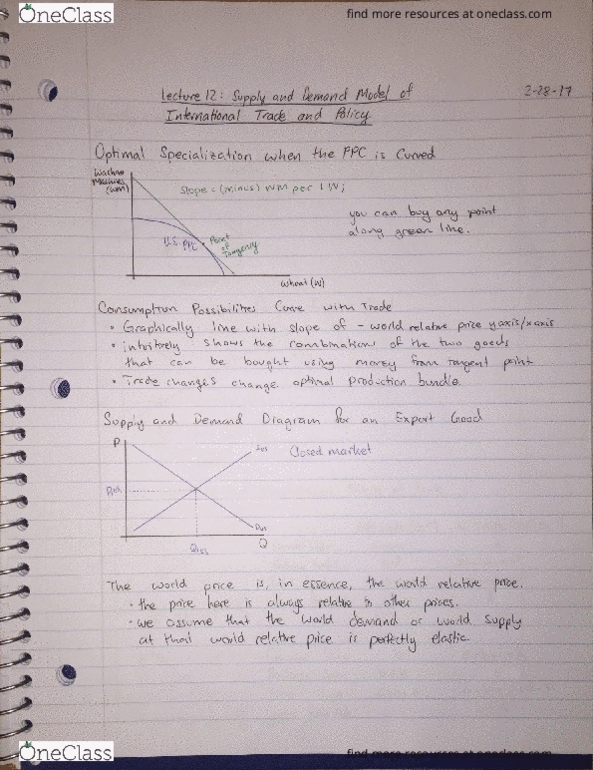 OneClass
find more resources at oneclass.com
Lecture 12: Supply and Demand Model of
International Trade and Policy
2-28-17
Optimal Specialization when the PPC is Curved
Washing
Machines
(WM)
Slope = (minus) WM per 1W;
you can buy any point
along green line.
U.S. PPC
Point
of
Tangency
Wheat (W)
Consumption Possibilities Curve with Trade
• Graphically line with slope of - world relative price yaxis/xaxis
• intuitively shows the combination of the two goods
that can be bought using money from tangent point
• Trade changes change optimal production bundle
Supply and Demand Diagram for an Export Good
P
Sus
Closed market
Dus
Q
The world price is, in essence, the world relative price.
• the price here is always relative to other prices.
• we assume that the world demand or world supply
at that world relative price is perfectly elastic.
OneClass
find more resources at oneclass.com